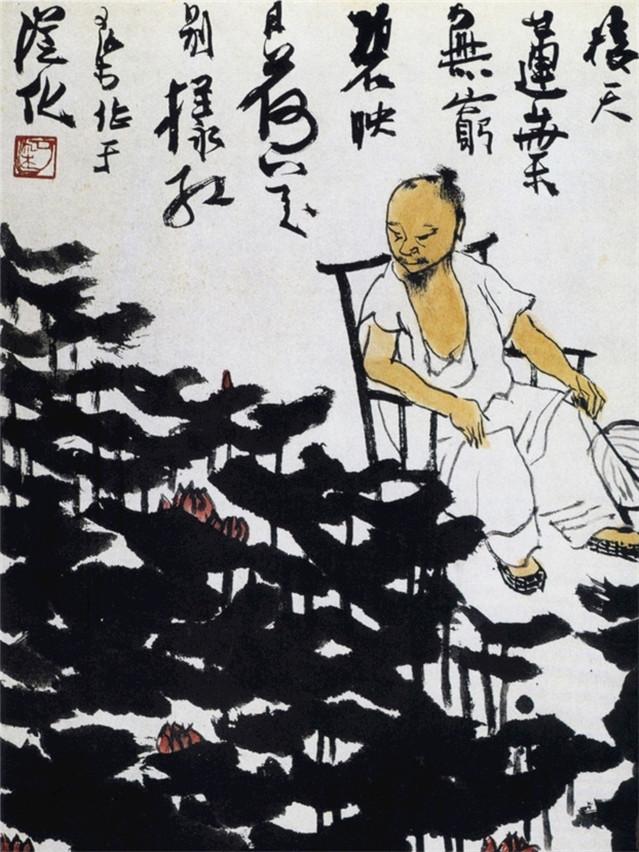 接天
蓮葉
無窮
碧映
日荷花
別樣紅
作于
從化